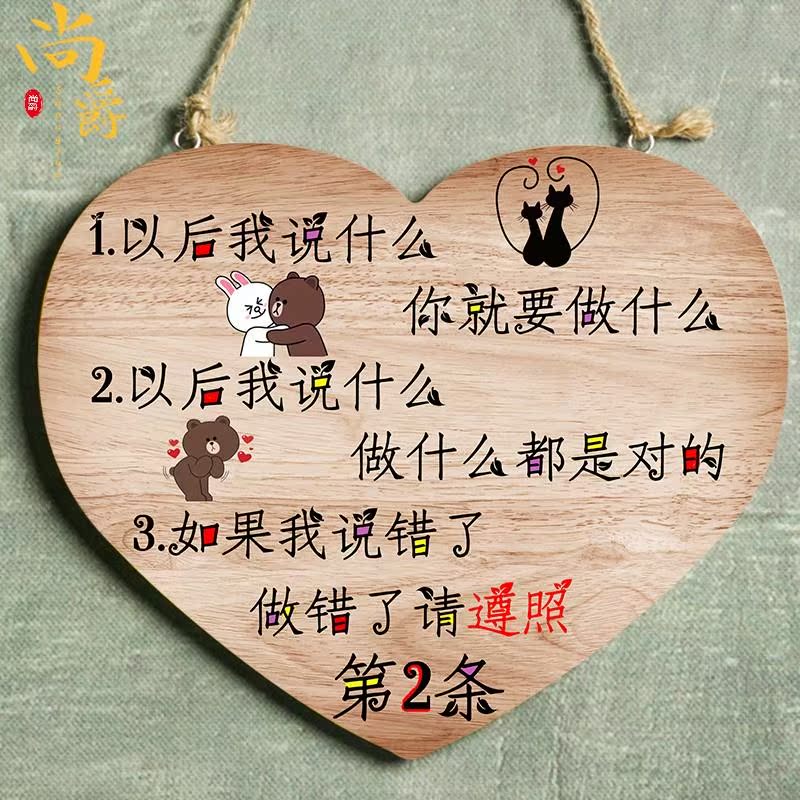 尚爵
尚爵
1.以后我说什么
你就要做什么
2.以后我说什么
做什么都是对的
3.如果我说错了
做错了请遵照
第2条